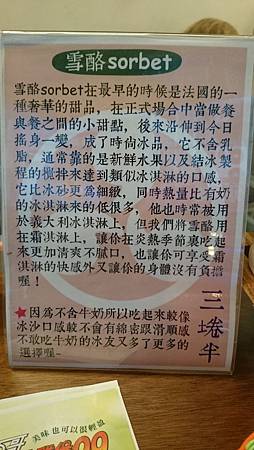 雪酪sorbet
雪酪sorbet在最早的時候是法國的一
種奢華的甜品，在正式場合中當做餐
與餐之間的小甜點，後來沿伸到今日
搖身一變，成了時尚冰品，它不含乳
脂，通常靠的是新鮮水果以及結冰製
程的攪拌來達到類似冰淇淋的口感，
它比冰砂更為細緻，同時熱量比有奶
的冰淇淋來的低很多，他也時常被用
於義大利冰淇淋上，但我們將雪酪用
在霜淇淋上，讓你在炎熱季節裏吃起
來更加清爽不膩口，也讓你可享受霜
淇淋的快感外又讓你的身體沒有負擔
喔！
三塊半
★因為不含牛奶所以吃起來較像
冰沙口感較不會有綿密跟滑順感
不敢吃牛奶的冰友又多了更多的
選擇喔~
美味也可以很輕盈